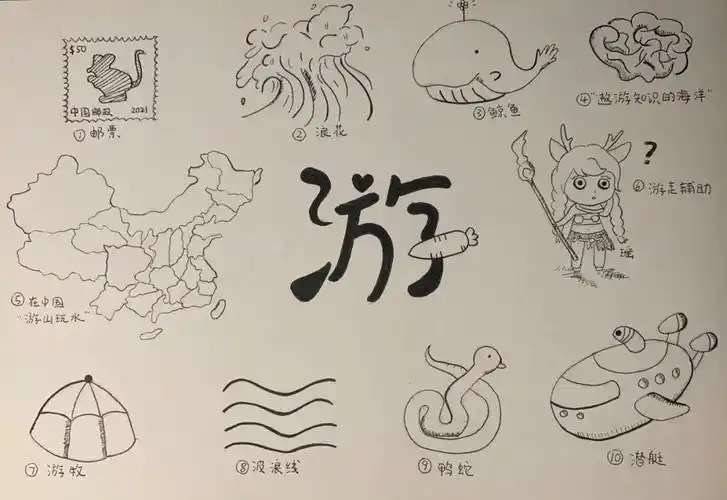 $50
中国邮政 2021
①邮票
②浪花
③鲸鱼
④“遨游知识的海洋”
游
?
⑥游走辅助
瑶
⑤在中国
“游山玩水”
⑦游牧
⑧波浪线
⑨鸭蛇
⑩潜艇